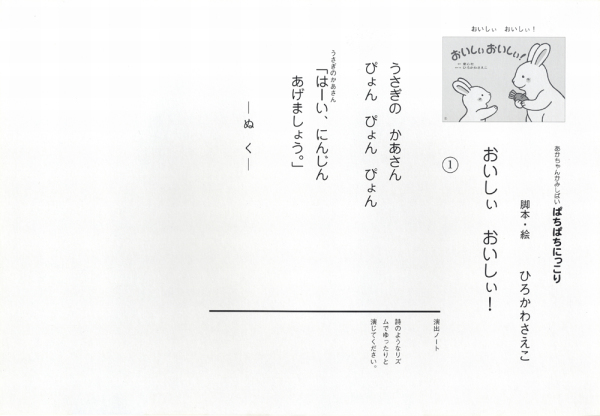 おいしぃ　おいしぃ！
おいしぃおいしぃ！
あかちゃんかみしばい　ぱちぱちにっこり
脚本・絵　ひろかわさえこ
おいしぃ　おいしぃ！
①
うさぎの　かあさん
ぴょん　ぴょん　ぴょん
うさぎのかあさん
「はーい、にんじん
あげましょう。」
―ぬ　く―
演出ノート
詩のようなリズ
ムでゆったりと
演じてください。